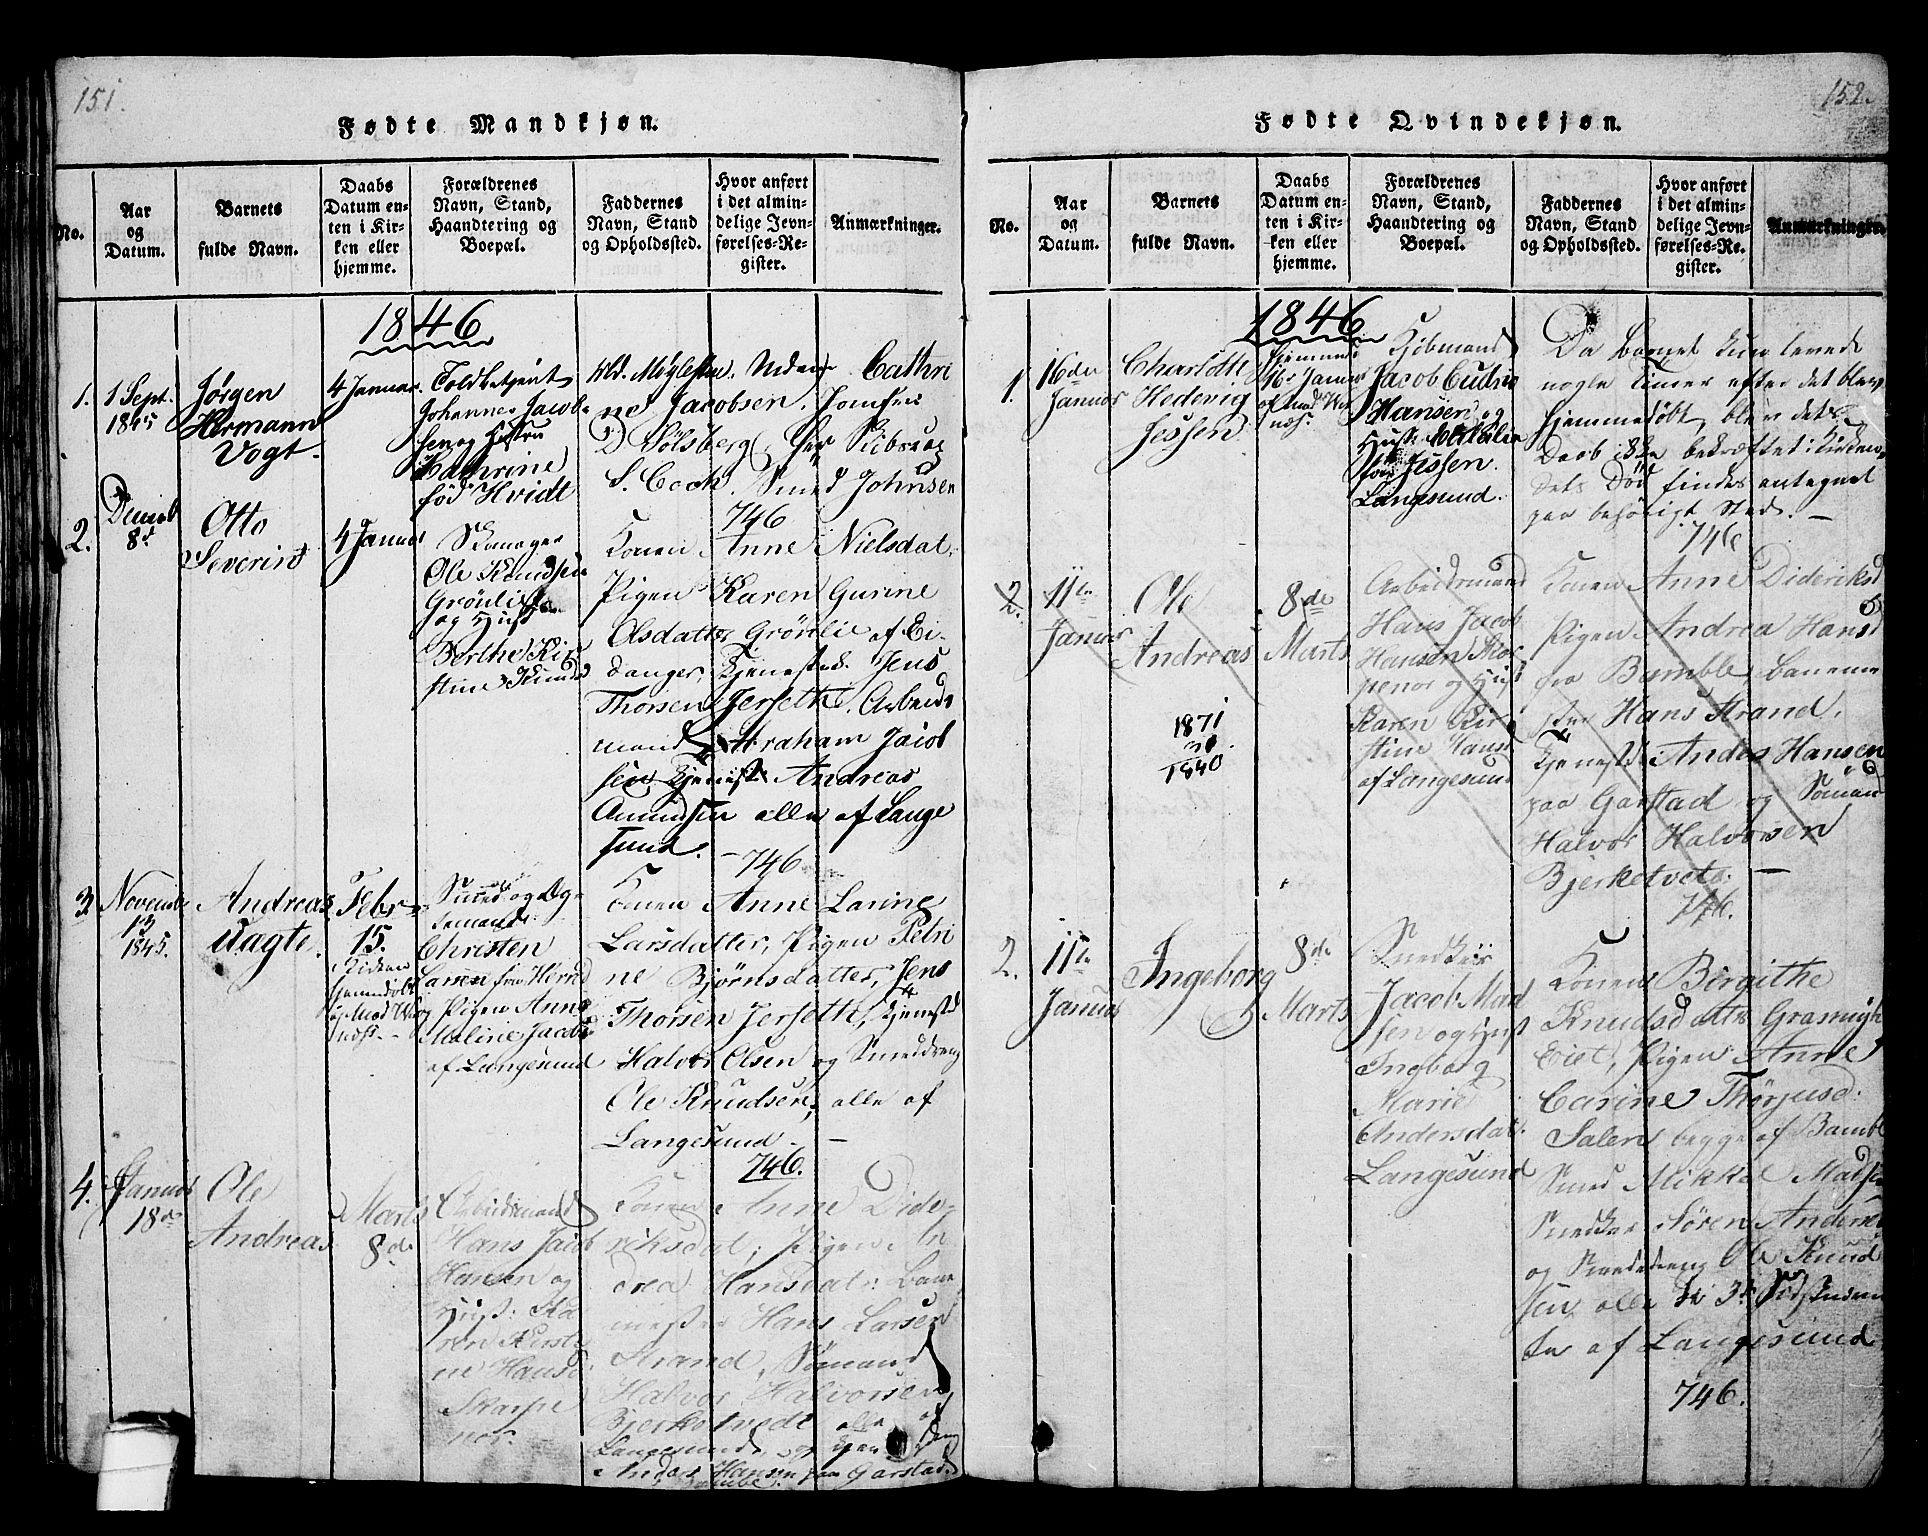 151.
Fødte Mandkjøn.
No.
Aar
og
Datum.
Barnets
fulde Navn.
Daabs
Datum en-
ten i Kir-
ken eller
hjemme.
Forældrenes
Navn, Stand,
Haandtering og
Boepæl.
Faddernes
Navn, Stand
og Opholdssted.
Hvor anført
i det almin-
delige Jevn-
førelses-Re-
gister.
Anmærkninger.
1846
1.
1 Sept.
1845
Jørgen
Hermann
Vogt.
4 Januar
Toldbetjent
Johannes Jacob-
sen og Hustru
Kathrine
fød Hvidt
Cathri
ne Jacobsen, Jomfru
D Sølsberg,
S. Cock. Smed Johnsen
746
2.
Decemb
8de
Otto
Severin
4 Januar
Skomager
Ole Knudsen
Grönlie
og Hust
Berthe Kir
stine Knuds
Konen Anne Nielsdat.
Pigen Karen Gurine
Olsdatter Grönlie af Ei-
danger, Tjenestek. Jens
Thorsen Jerseth. Arbeids
mand Abraham Jacob
sen Tjenest Andreas
Amundsen alle af Lange
sund. — 746
3
Novembr
13
1845.
Andreas
Aagte.
Febr
15.
Smed og
Christen
Larsen fra
Pigen Anne
Maline Jacobs
af Langesund
Konen Anne Larine
Larsdatter, Pigen Petri
ne Bjørnsdatter, Jens
Thorsen Jerseth, Tjenestd
Halvor Olsen og Smeddreng
Ole Knudsen, alle af
Langesund. —
746.
4.
Januar
18de
Ole
Andreas
Marts
8de
Arbeidsmand
Hans Jacob
Hansen og
Hust. Ka
ren Kirsti
ne Hansd.
Skarpe
nor.
Konen Anne Dide-
riksdat; Pigen An
drea Hansdat: Bane
mester Hans Larsen
Strand, Sømand
Halvor Halvorsen
Bjerketvedt alle af
Langesund og Tjen Dreng
Anders Hansen paa Garstad
Bamble.
152.
Fødte Qvindekjøn.
No.
Aar
og
Datum.
Barnets
fulde Navn.
Daabs
Datum en-
ten i Kir-
ken eller
hjemme.
Forældrenes
Navn, Stand,
Haandtering og
Boepæl.
Faddernes
Navn, Stand
og Opholdssted.
Hvor anført
i det almin-
delige Jevn-
førelses-Re-
gister.
Anmærkninger.
1846
1.
16de
Januar
Charlotte
Hedevig
Jessen
Hjemme
16 Januar
Kjøbmand
Jacob
Hansen og
Hust.
fød Jessen.
Langesund.
Da Barnet kun levede
nogle Timer efter det blev
hjemmedøbt, blev dets
Daab ikke bekræftet i Kirken,
dets Død findes antegnet
paa behörigt Sted. —
746
2.
11te
Januar
Ole
Andreas
1871
31.
1840
8de
Marts
Arbeidsmand
Hans Jacob
Hansen Skar
penor og Hust
Karen Kir
stine Hansd
af Langesund
Konen Anne Dideriksd
Pigen Andrea Hansd
fra Bamble, Baneme
ster Hans Strand,
Tjenestd Andes Hansen
paa Garstad og Sømand
Halvor Halvorsen
Bjerketvets. —
746.
2.
11te
Januar
Ingeborg
8de
Marts
Snedker
Jacob Mad
sen og Hust
Ingborg
Marie
Andersdat.
Langesund
Konen Birgithe
Knudsdatter
Eiet, Pigen Anne
Carine Thorjusd.
Salen begge af Bamble
Smed Mikkel Madsen
Snedker Søren Anders
og Smededreng Ole Knud
sen alle de 3 Sidstnævn
te af Langesund
746.